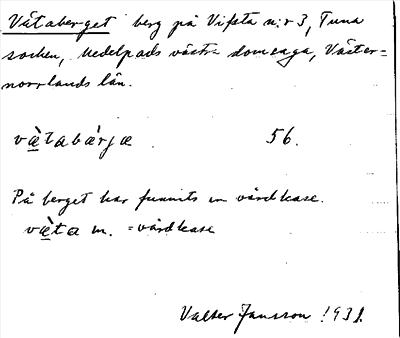 Vätaberget berg på Vifsta n:r 3, Tuna
socken, Medelpads västra domsaga, Väster=
norrlands län.
væ̀tabárjæ 56.
På berget har funnits en vårdkase.
væ̀ta m. = vårdkase
Valter Jansson 1931.